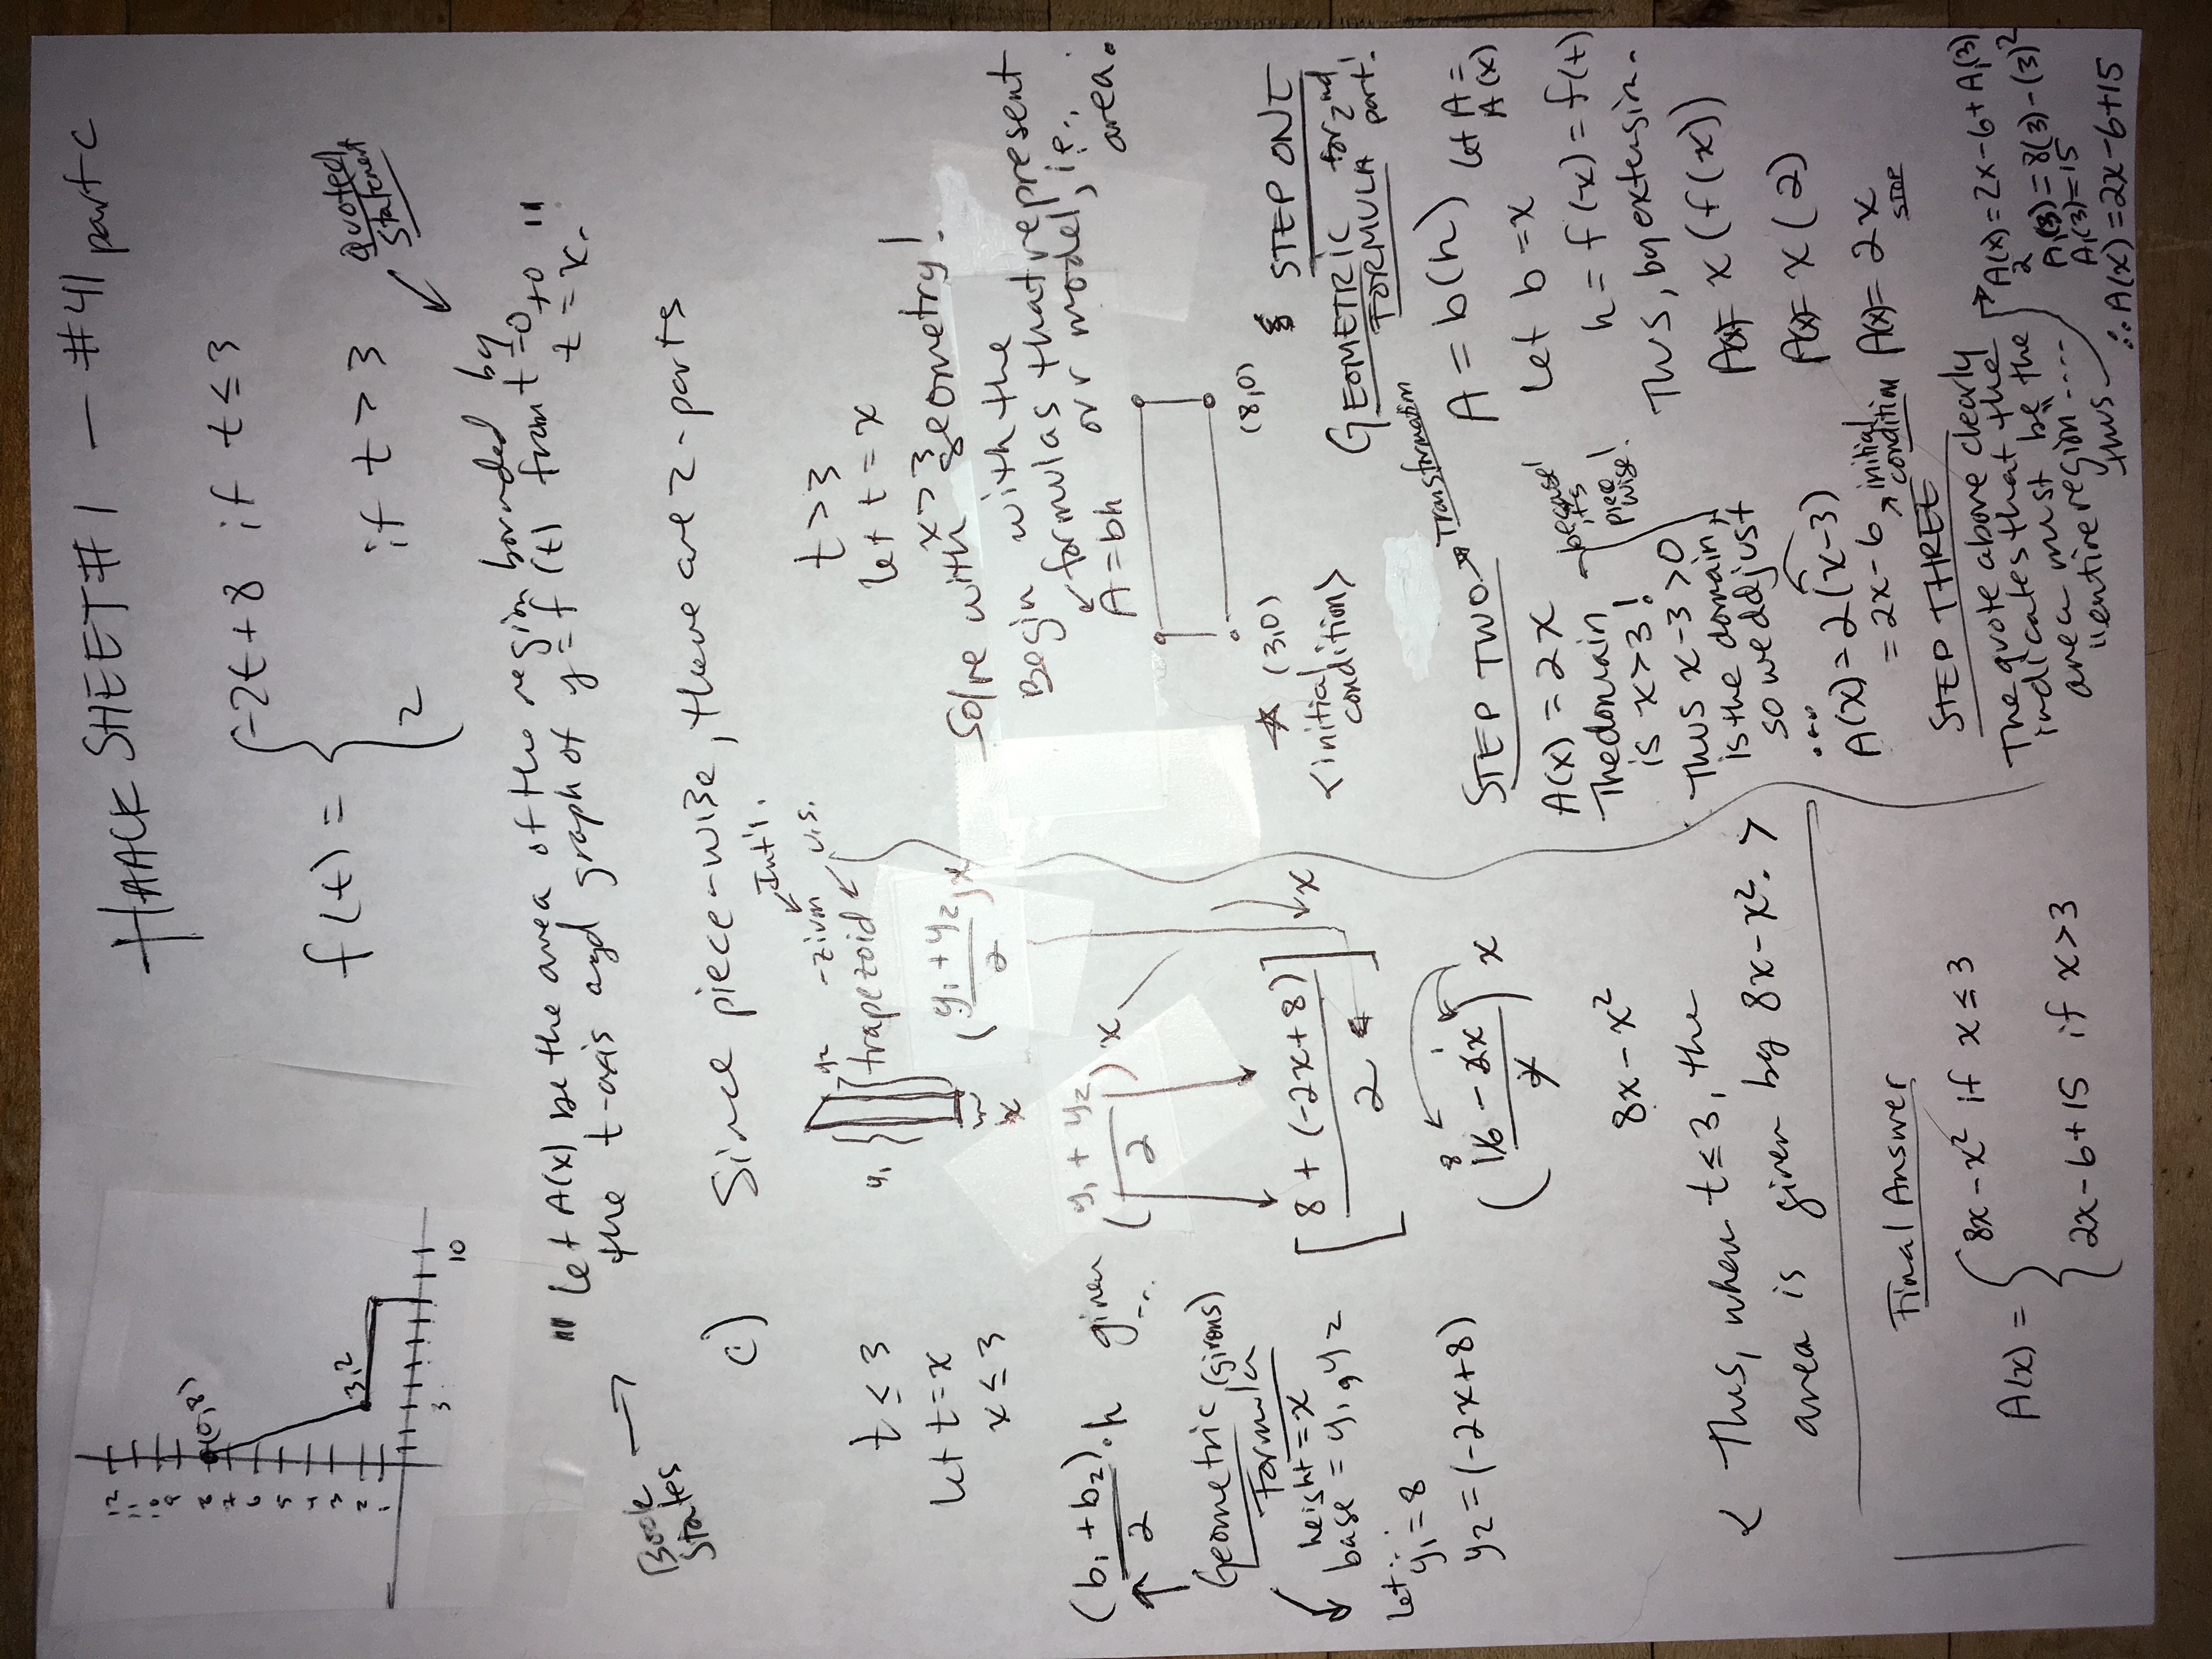 HAACK SHEET #1 — #41 part c
12
11
10
9
8
7
6
5
4
3
2
1
(0,8)
3,2
3
10
f(t) = { -2t+8 if t ≤ 3
2 if t > 3
Quoted
Statement
Book
States
"Let A(x) be the area of the region bounded by
the t-axis and graph of y = f(t) from t=0 to
t = x."
c) Since piece-wise, there are 2-parts
t ≤ 3
let t = x
x ≤ 3
Int'l.
-zium
U.S.
trapezoid
y1
y2
x
(y1 + y2 / 2) x
(b1 + b2 / 2) · h given (y1 + y2 / 2) x
Geometric (givens)
Formula
height = x
base = y1, y2
Let:
y1 = 8
y2 = (-2x+8)
[8 + (-2x+8) / 2] x
(16 - 2x / 2) x
8
8x - x²
< Thus, when t ≤ 3, the
area is given by 8x - x². >
Final Answer
A(x) = { 8x - x² if x ≤ 3
2x - 6 + 15 if x > 3
t > 3
let t = x
x > 3
Solve with geometry!
Begin with the
formulas that represent
or model, i.e.,
area.
A = bh
* (3,0)
(8,0)
<initial
condition>
STEP ONE
GEOMETRIC for 2nd
FORMULA part!
A = b(h) let A =
A(x)
Let b = x
h = f(x) = f(t)
Thus, by extension.
A(x) = x(f(x))
A(x) = x(2)
A(x) = 2x
STOP
STEP TWO → Transformation
A(x) = 2x
The domain
is x > 3!
because
it's
piece
wise!
Thus x - 3 > 0
is the domain,
so we adjust
∴
A(x) = 2(x-3)
= 2x - 6 → initial
condition
STEP THREE
The quote above clearly
indicates that the
area must be the
"entire region"....
thus
A2(x) = 2x - 6 + A1(3)
A1(3) = 8(3) - (3)²
A1(3) = 15
∴ A(x) = 2x - 6 + 15